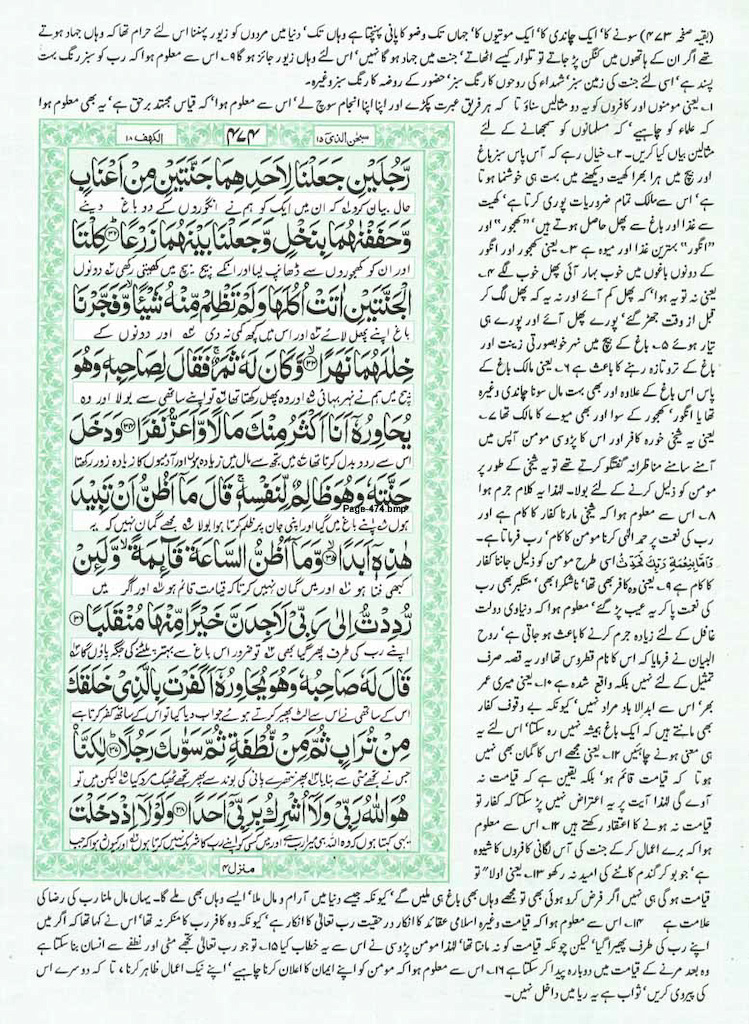 (بقیہ صفحہ ۴۷۳) سونے کا' ایک چاندی کا' ایک موتیوں کا' جہاں تک وضو کا پانی پہنچتا ہے وہاں تک' دنیا میں مردوں کو زیور پہننا اس لئے حرام تھا کہ وہاں جہاد ہوتے
تھے اگر ان کے ہاتھوں میں کنگن پڑ جاتے تو تلوار کیسے اٹھاتے' جنت میں جہاد ہو گا نہیں' اس لئے وہاں زیور جائز ہو گا ۹۔ اس سے معلوم ہوا کہ رب کو سبز رنگ بہت
پسند ہے' اسی لئے جنت کی زمین سبز' شہداء کی روحوں کا رنگ سبز' حضور کے روضہ کا رنگ سبز وغیرہ۔
۱۔ یعنی مومنوں اور کافروں کو یہ دو مثالیں سناؤ تا کہ ہر فریق عبرت پکڑے اور اپنا اپنا انجام سوچ لے' اس سے معلوم ہوا' کہ قیاس مجتہد برحق ہے' یہ بھی معلوم ہوا
کہ علماء کو چاہیے' کہ مسلمانوں کو سمجھانے کے لئے
مثالیں بیان کیا کریں۔ ۲۔ خیال رہے کہ آس پاس سبز باغ
اور بیچ میں ہرا بھرا کھیت دیکھنے میں بہت ہی خوشنما ہوتا
ہے' اس سے مالک تمام ضروریات پوری کرتا ہے' کھیت
سے غذا اور باغ سے پھل حاصل ہوتے ہیں' "کھجور" اور
"انگور" بہترین غذا اور میوہ ہے ۳۔ یعنی کھجور اور انگور
کے دونوں باغوں میں خوب بہار آئی پھل خوب لگے ۴۔
یعنی نہ تو یہ ہوا' کہ پھل کم آئے اور نہ یہ کہ پھل لگ کر
قبل از وقت جھڑ گئے' پورے پھل آئے اور پورے ہی
تیار ہوئے ۵۔ باغ کے بیچ میں نہر خوبصورتی زینت اور
باغ کے تر و تازہ رہنے کا باعث ہے ۶۔ یعنی مالک باغ کے
پاس اس باغ کے علاوہ اور بھی بہت مال سونا چاندی وغیرہ
تھا یا انگور' کھجور کے سوا اور بھی میوے کا مالک تھا ۷۔
یعنی یہ شیخی خورہ کافر اور اس کا پڑوسی مومن آپس میں
آمنے سامنے مناظرانہ گفتگو کرتے تھے تو یہ شیخی کے طور پر
مومن کو ذلیل کرنے کے لئے بولا۔ لہٰذا یہ کلام جرم ہوا
۸۔ اس سے معلوم ہوا کہ شیخی مارنا کفار کا کام ہے اور
رب کی نعمت پر حمد الٰہی کرنا مومن کا کام' رب فرماتا ہے۔
وَاَمَّا بِنِعْمَةِ رَبِّكَ فَحَدِّثْ اسی طرح مومن کو ذلیل جاننا کفار
کا کام ہے ۹۔ یعنی وہ کافر بھی تھا' ناشکرا بھی' متکبر بھی رب
کی نعمت پا کر یہ عیب پڑ گئے' معلوم ہوا کہ دنیاوی دولت
غافل کے لئے زیادہ جرم کرنے کا باعث ہو جاتی ہے' روح
البیان نے فرمایا کہ اس کا نام قطروس تھا اور یہ قصہ صرف
تمثیل کے لئے نہیں بلکہ واقع شدہ ہے ۱۰۔ یعنی میری عمر
بھر' اس سے ابد الاباد مراد نہیں' کیونکہ بے وقوف کفار
بھی مانتے ہیں کہ ایک باغ ہمیشہ نہیں رہ سکتا' اس لئے یہ
ہی معنی ہونے چاہئیں ۱۲۔ یعنی مجھے اس کا گمان بھی نہیں
ہوتا کہ قیامت قائم ہو' بلکہ یقین ہے کہ قیامت نہ
آوے گی لہٰذا آیت پر یہ اعتراض نہیں پڑ سکتا کہ کفار تو
قیامت نہ ہونے کا اعتقاد رکھتے ہیں ۱۲۔ اس سے معلوم
ہوا کہ برے اعمال کر کے جنت کی آس لگانی کافروں کا شیوہ
ہے' جو بو کر گندم کاٹنے کی امید نہ رکھو ۱۳۔ یعنی اولا" تو
سبحٰن الذی ۱۵
۴۷۴
الکھف ۱۸
رَّجُلَيْنِ جَعَلْنَا لِاَحَدِهِمَا جَنَّتَيْنِ مِنْ اَعْنَابٍ
حال بیان کرو کہ ان میں ایک کو ہم نے انگوروں کے دو باغ دیئے
وَّحَفَفْنٰهُمَا بِنَخْلٍ وَّجَعَلْنَا بَيْنَهُمَا زَرْعًا ۝۳۲ كِلْتَا
اور ان کو کھجوروں سے ڈھانپ لیا اور انکے بیچ بیچ میں کھیتی رکھی دونوں
الْجَنَّتَيْنِ اٰتَتْ اُكُلَهَا وَلَمْ تَظْلِمْ مِّنْهُ شَيْـًٔا وَّفَجَّرْنَا
باغ اپنے پھل لائے اور اس میں کچھ کمی نہ دی اور دونوں کے
خِلٰلَهُمَا نَهَرًا ۝۳۳ وَّكَانَ لَهٗ ثَمَرٌ فَقَالَ لِصَاحِبِهٖ وَهُوَ
بیچ میں ہم نے نہر بہائی اور وہ پھل رکھتا تھا تو اپنے ساتھی سے بولا اور وہ
يُحَاوِرُهٗۤ اَنَا اَكْثَرُ مِنْكَ مَالًا وَّاَعَزُّ نَفَرًا ۝۳۴ وَدَخَلَ
اس سے رد و بدل کرتا تھا میں تجھ سے مال میں زیادہ ہوں اور آدمیوں کا زیادہ زور رکھتا
جَنَّتَهٗ وَهُوَ ظَالِمٌ لِّنَفْسِهٖ قَالَ مَاۤ اَظُنُّ اَنْ تَبِيْدَ
Page-474.bmp
ہوں اپنے باغ میں گیا اور اپنی جان پر ظلم کرتا ہوا بولا مجھے گمان نہیں کہ یہ
هٰذِهٖۤ اَبَدًا ۝۳۵ وَّمَاۤ اَظُنُّ السَّاعَةَ قَآئِمَةً وَّلَئِنْ
کبھی فنا ہو اور میں گمان نہیں کرتا کہ قیامت قائم ہو اور اگر میں
رُّدِدْتُّ اِلٰى رَبِّيْ لَاَجِدَنَّ خَيْرًا مِّنْهَا مُنْقَلَبًا ۝۳۶
اپنے رب کی طرف پھر گیا بھی تو ضرور اس باغ سے بہتر پلٹنے کی جگہ پاؤں گا
قَالَ لَهٗ صَاحِبُهٗ وَهُوَ يُحَاوِرُهٗۤ اَكَفَرْتَ بِالَّذِيْ خَلَقَكَ
اس کے ساتھی نے اس سے الٹ پھیر کرتے ہوئے جواب دیا کیا تو اس کے ساتھ کفر کرتا ہے
مِنْ تُرَابٍ ثُمَّ مِنْ نُّطْفَةٍ ثُمَّ سَوّٰىكَ رَجُلًا ۝۳۷ لٰكِنَّا۠
جس نے تجھے مٹی سے بنایا پھر نتھرے پانی کی بوند سے پھر تجھے ٹھیک مرد کیا لیکن میں تو
هُوَ اللّٰهُ رَبِّيْ وَلَاۤ اُشْرِكُ بِرَبِّيْۤ اَحَدًا ۝۳۸ وَلَوْلَاۤ اِذْ دَخَلْتَ
یہی کہتا ہوں کہ وہ اللہ ہی میرا رب ہے اور میں کسی کو اپنے رب کا شریک نہیں کرتا ہوں اور کیوں نہ ہوا کہ جب
منزل ۴
قیامت ہو گی ہی نہیں اگر فرض کرو ہوئی بھی تو مجھے وہاں بھی باغ ہی ملیں گے' کیونکہ جیسے دنیا میں آرام و مال ملا' ایسے وہاں بھی ملے گا۔ یہاں مال ملنا رب کی رضا کی
علامت ہے ۱۴۔ اس سے معلوم ہوا کہ قیامت وغیرہ اسلامی عقائد کا انکار در حقیقت رب تعالیٰ کا انکار ہے' کیونکہ وہ کافر رب کا منکر نہ تھا' اس نے کہا تھا کہ اگر میں
اپنے رب کی طرف پھیرا گیا' لیکن چونکہ قیامت کو نہ مانتا تھا' لہٰذا مومن پڑوسی نے اس سے یہ خطاب کیا ۱۵۔ تو جو رب تعالیٰ تجھے مٹی اور نطفے سے انسان بنا سکتا ہے
وہ بعد مرنے کے قیامت میں دوبارہ پیدا کر سکتا ہے ۱۶۔ اس سے معلوم ہوا کہ مومن کو اپنے ایمان کا اعلان کرنا چاہیے' اپنے نیک اعمال ظاہر کرنا' تا کہ دوسرے اس
کی پیروی کریں' ثواب ہے یہ ریا میں داخل نہیں۔